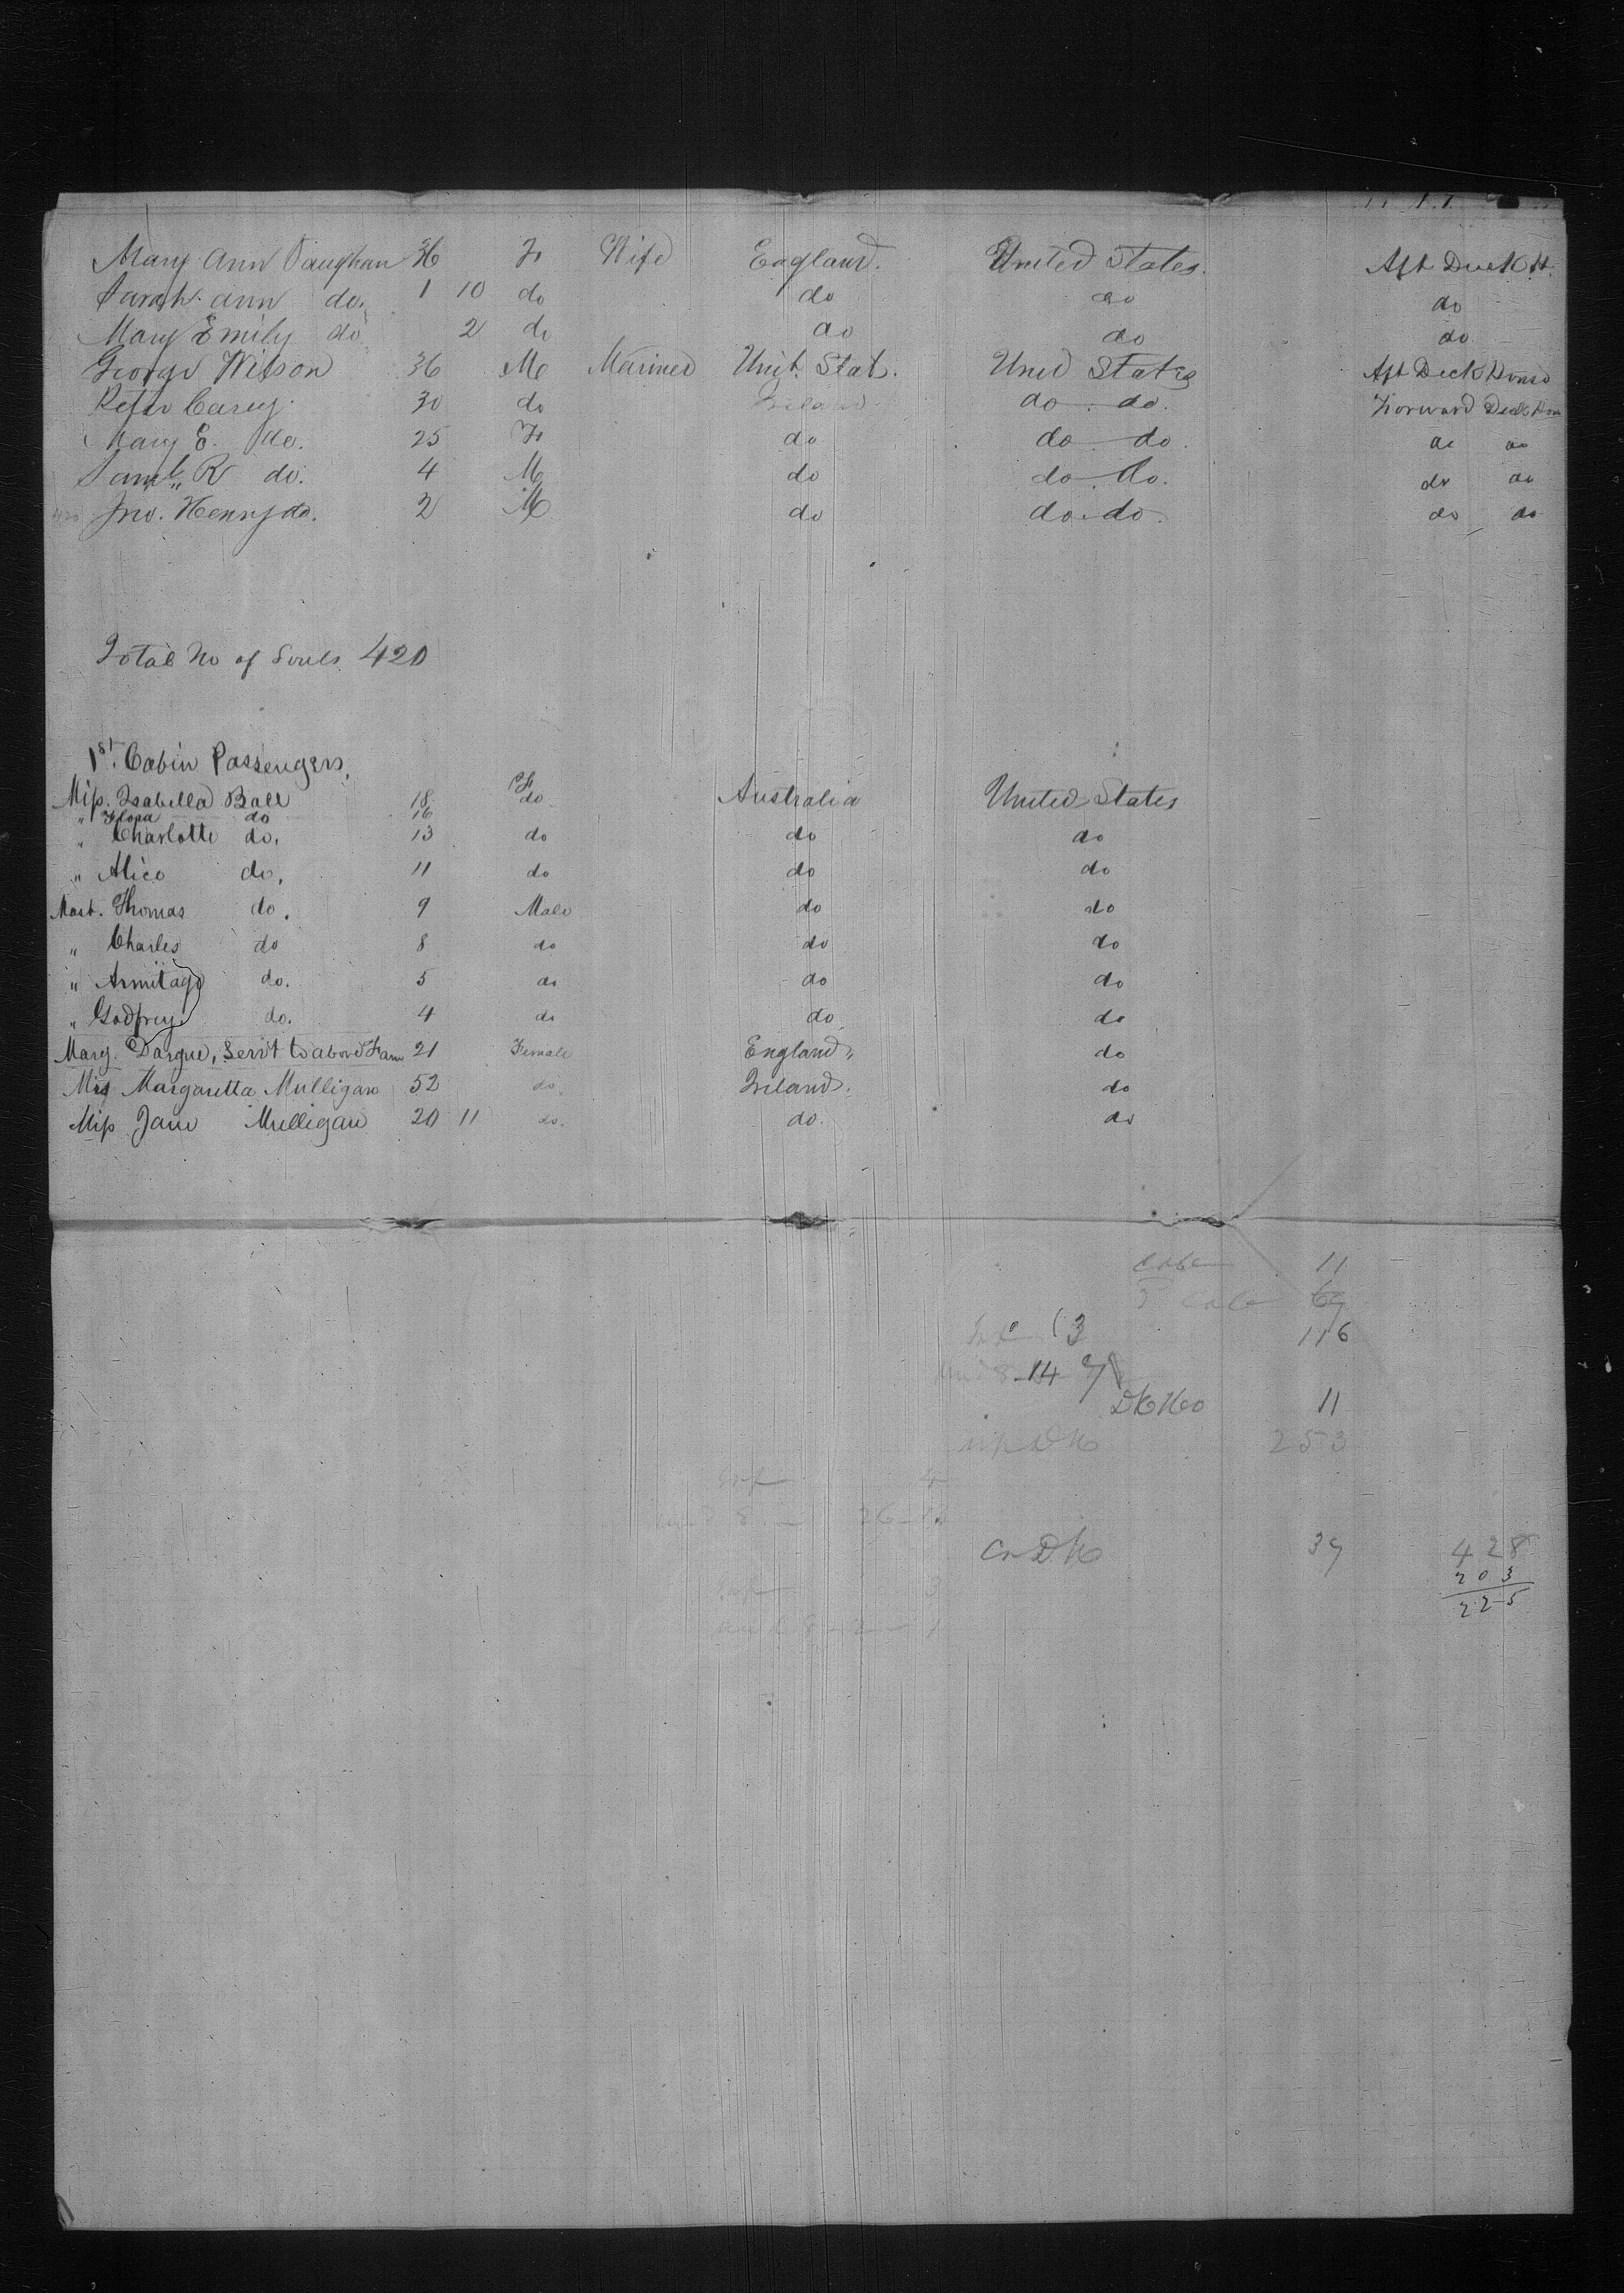 Mary Ann Vaughan 36 F Wife England. United States. Aft Deck H.
Sarah Ann do. 1 10 do do do do
Mary Emily do 2 do do do do
George Wilson 36 M Mariner Unit. Stat. Uned States Aft Deck House
Peter Carey 30 do Ireland do. do. Forward Deck Hou
Mary E. do. 25 F do do do. do do
Saml. R do. 4 M do do. do. do do
420 Jno. Henry do. 2 M do do. do. do do
Total No of Souls 420
1st. Cabin Passengers,
Miss. Isabella Ball 18 F Australia United States
" Flora do 16 do
" Charlotte do. 13 do do do
" Alice do. 11 do do do
Mast. Thomas do. 9 Male do do
" Charles do 8 do do do
" Armitage do. 5 do do do
" Godfrey do. 4 do do do
Mary. Dargue, Servt to above Fam 21 Female England " do
Mrs Margaretta Mulligan 52 do. Ireland. do
Miss Jane Mulligan 20 11 do. do. do
11
69
Inf (3 116
14
Dk Ho 11
up Dk 253
Inf 4
Dk 39 428
203
225
Inf 3